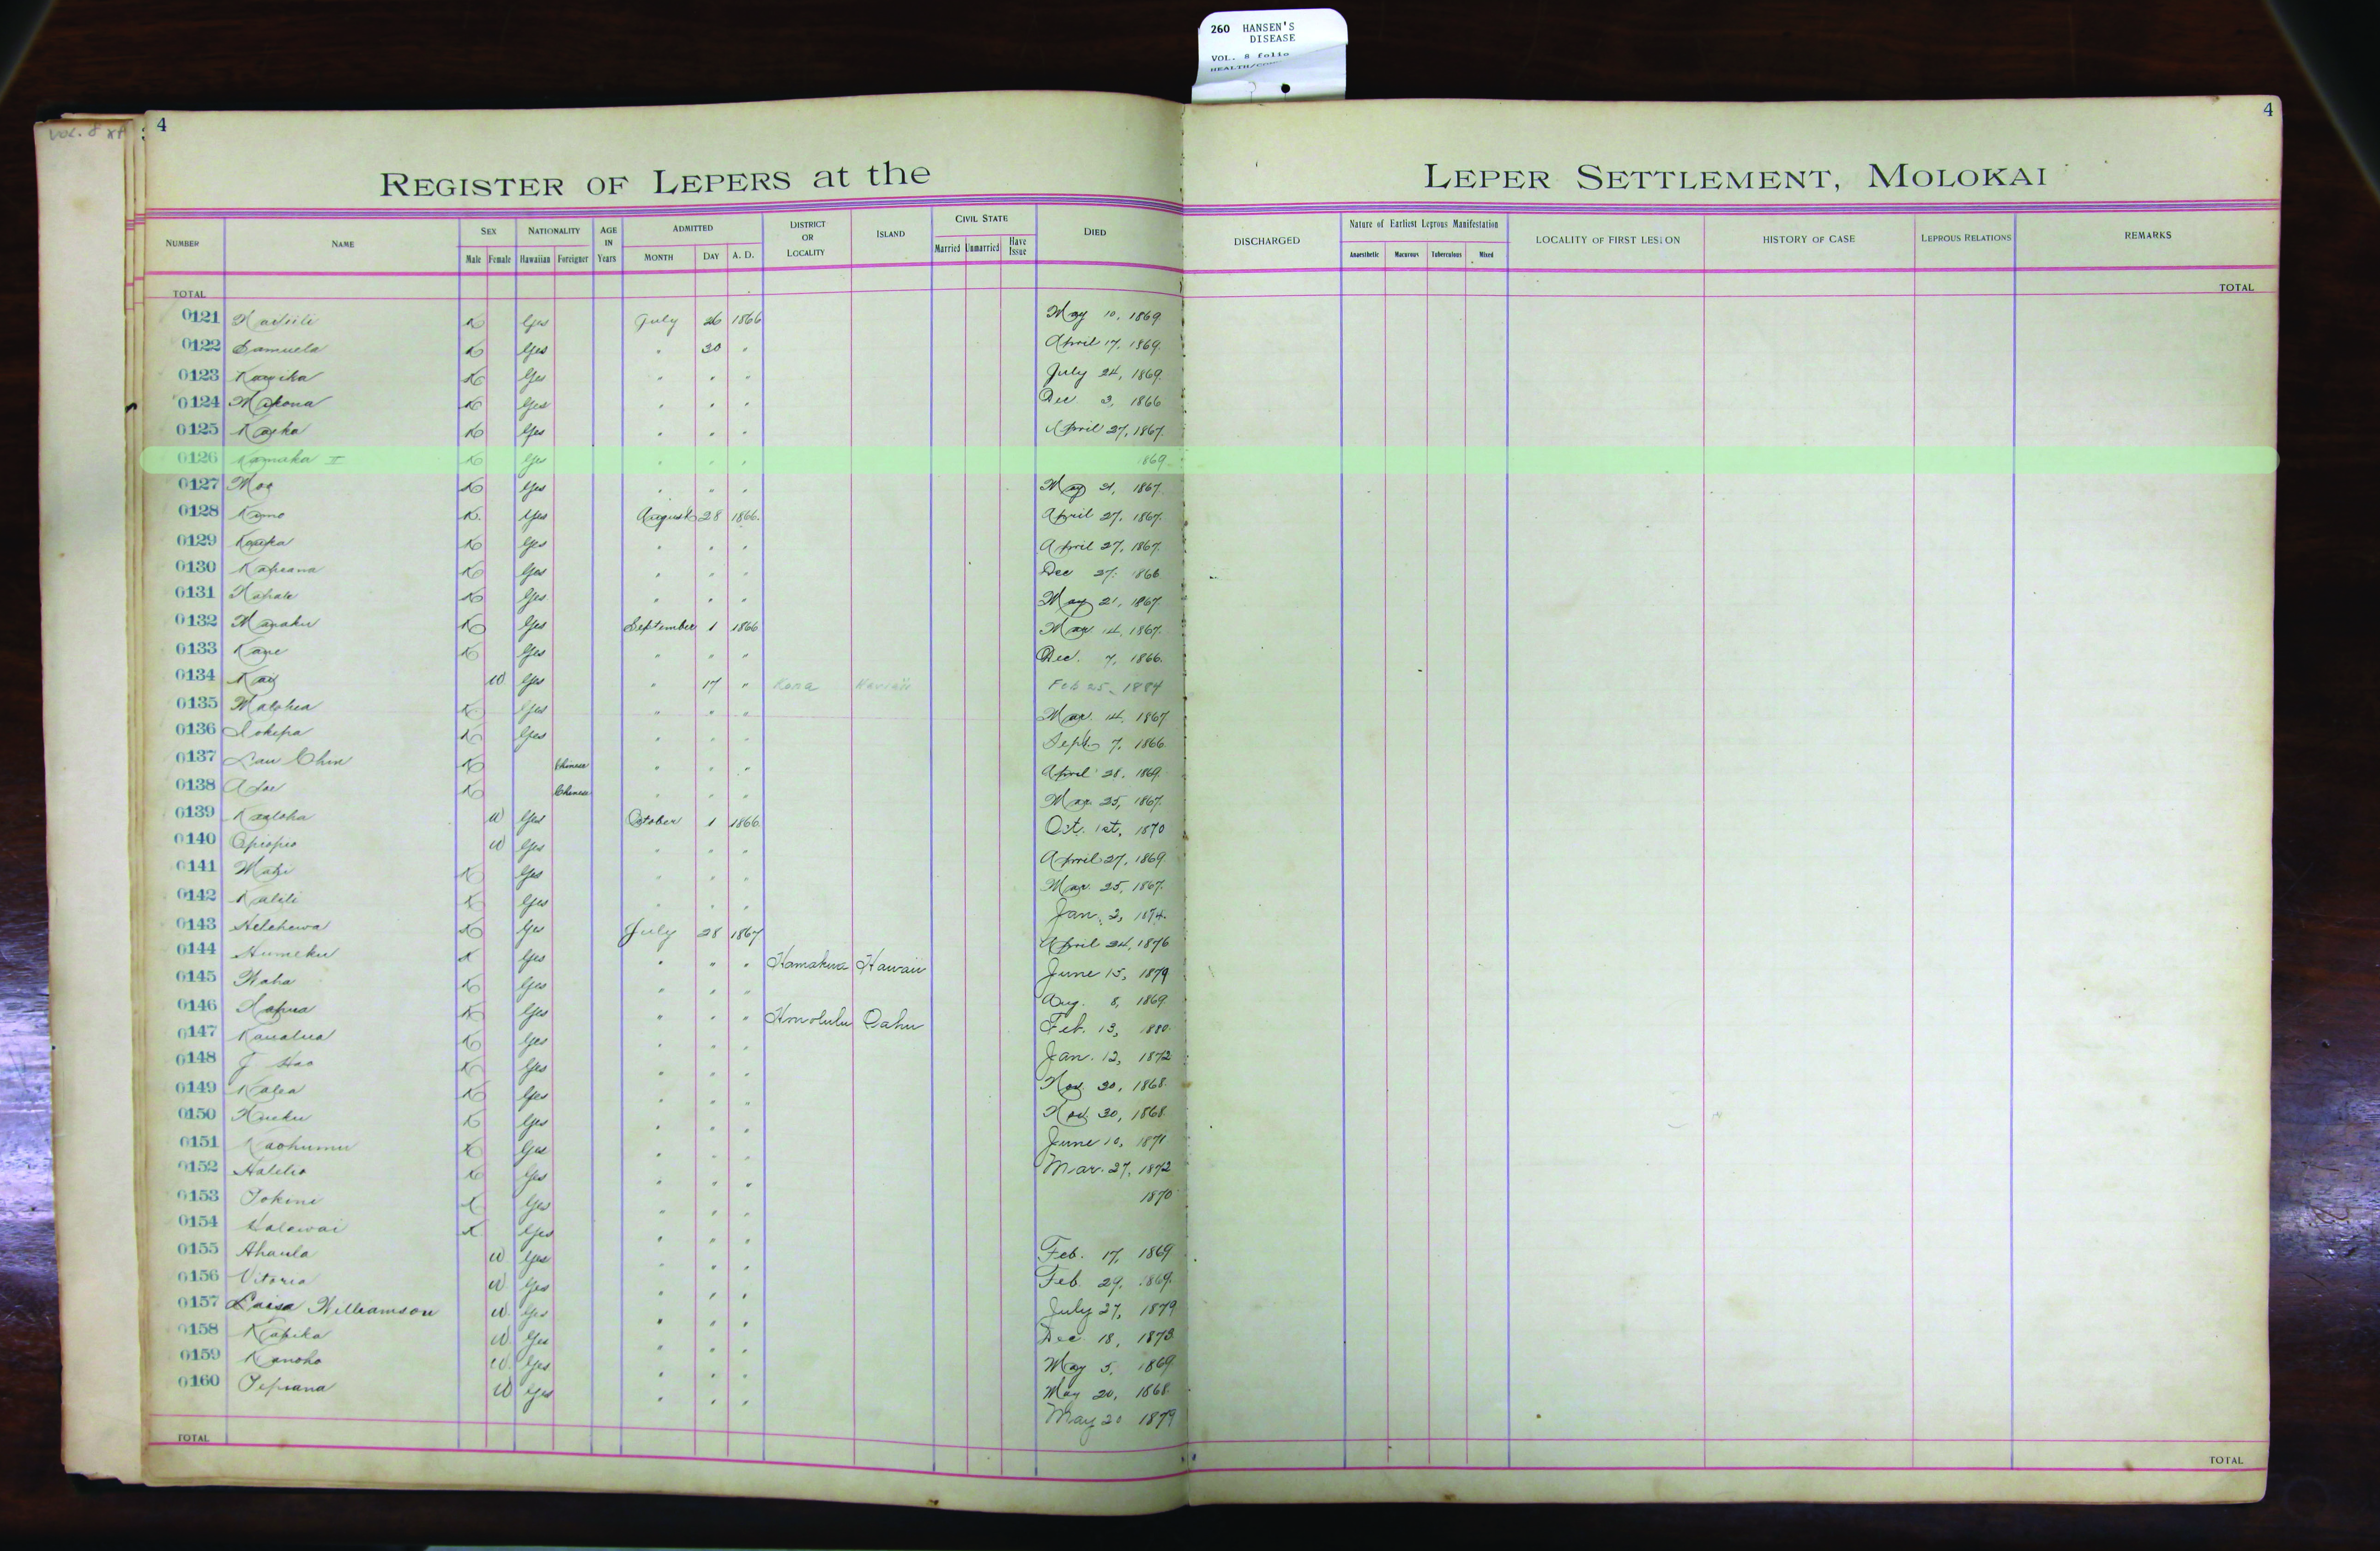 260 HANSEN'S
DISEASE
VOL. 8 folio
VOL. 8
4
4
REGISTER OF LEPERS at the
LEPER SETTLEMENT, MOLOKAI
NUMBER NAME SEX Male Female NATIONALITY Hawaiian Foreigner AGE IN Years ADMITTED MONTH DAY A. D. DISTRICT OR LOCALITY ISLAND CIVIL STATE Married Unmarried Have Issue DIED DISCHARGED Nature of Earliest Leprous Manifestation Anaesthetic Macurous Tuberculous Mixed LOCALITY OF FIRST LESION HISTORY OF CASE LEPROUS RELATIONS REMARKS
TOTAL TOTAL
0121 K Yes July 26 1866 May 10, 1869
0122 Samuela K Yes " 30 " April 17, 1869.
0123 K Yes " " " July 24, 1869.
0124 Makona K Yes " " " Dec. 3, 1866
0125 K Yes " " " April 27, 1867.
0126 Kamaka II K Yes " " " 1869
0127 Moa K Yes " " " 1867.
0128 Kamo K. Yes August 28 1866. April 27, 1867.
0129 K Yes " " " April 27, 1867.
0130 Kapuana K Yes " " " Dec 27, 1866
0131 K Yes " " " May 21, 1867.
0132 K Yes September 1 1866 Mar 14, 1867.
0133 K Yes " " " Dec. 7, 1866.
0134 W. Yes " 17 " Kona Hawaii Feb 25, 1884
0135 K Yes " " " Mar. 14, 1867
0136 Iokepa K Yes " " " Sept. 7, 1866
0137 Lau Chin K Chinese " " " April 28, 1869
0138 K Chinese " " " Mar 25, 1867.
0139 Kaaloha W Yes October 1 1866. Oct. 1st, 1870
0140 Opiopio W Yes " " " April 27, 1869.
0141 K Yes " " " Mar. 25, 1867.
0142 K Yes " " " Jan. 3, 1874.
0143 Helehewa K Yes July 28 1867 April 24, 1876
0144 Humeku K Yes " " " Hamakua Hawaii June 15, 1879
0145 K Yes " " " Aug. 8, 1869.
0146 K Yes " " " Honolulu Oahu Feb. 13, 1880.
0147 Kaualua K Yes " " " Jan. 12, 1872
0148 K Yes " " " Nov. 30, 1868.
0149 Kalea K Yes " " " Nov. 30, 1868
0150 K Yes " " " June 10, 1871
0151 Kaohumu K Yes " " " Mar. 27, 1872
0152 Halelio K Yes " " " 1870
0153 K Yes " " "
0154 Kalawai K Yes " " " Feb. 17, 1869
0155 Ahaula W Yes " " " Feb. 29, 1869.
0156 Vitoria W Yes " " " July 27, 1879
0157 Luisa Williamson W Yes " " " Dec. 18, 1873.
0158 Kapika W Yes " " " May 5, 1869
0159 Kanoho W Yes " " " May 20, 1868.
0160 W Yes " " " May 20 1879
TOTAL TOTAL